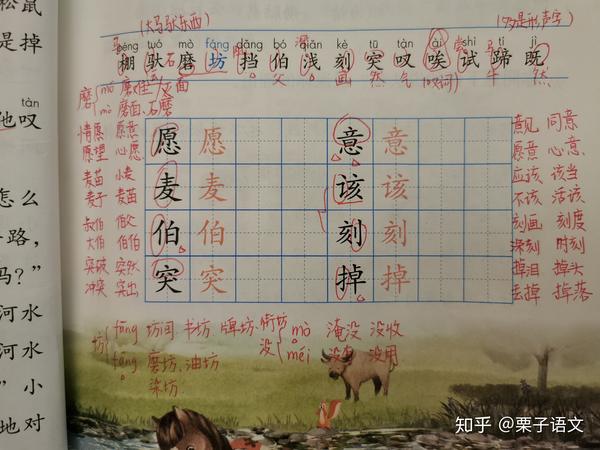 松鼠
是掉
tàn
他叹
怎么
路，
吗？”
河水
河水
” 小
地对
(大马驮东西)
(99是形声字)
péng tuó mò fáng dǎng bó qiǎn kè tū tàn āi shì tí jì
棚驮磨坊挡伯浅刻突叹唉试蹄既
父 画 然 气 (叹词) 牛 然
磨 mó 磨难 石磨
mò 磨面、石磨
情愿 愿意
愿望 心愿
麦苗 小麦
麦子 麦苗
叔伯 伯父
大伯 伯伯
突破 突然
冲突 突出
愿 愿 意 意
麦 麦 该 该
伯 伯 刻 刻
突 突 掉 掉
意见 同意
愿意 心意
应该 该当
不该 活该
刻画 刻度
深刻 时刻
掉泪 掉头
丢掉 掉落
坊 fāng 坊间 书坊 牌坊 街坊
fáng 磨坊、油坊
染坊
没 mò 淹没 没收
méi 没有 没用
知乎 @栗子语文